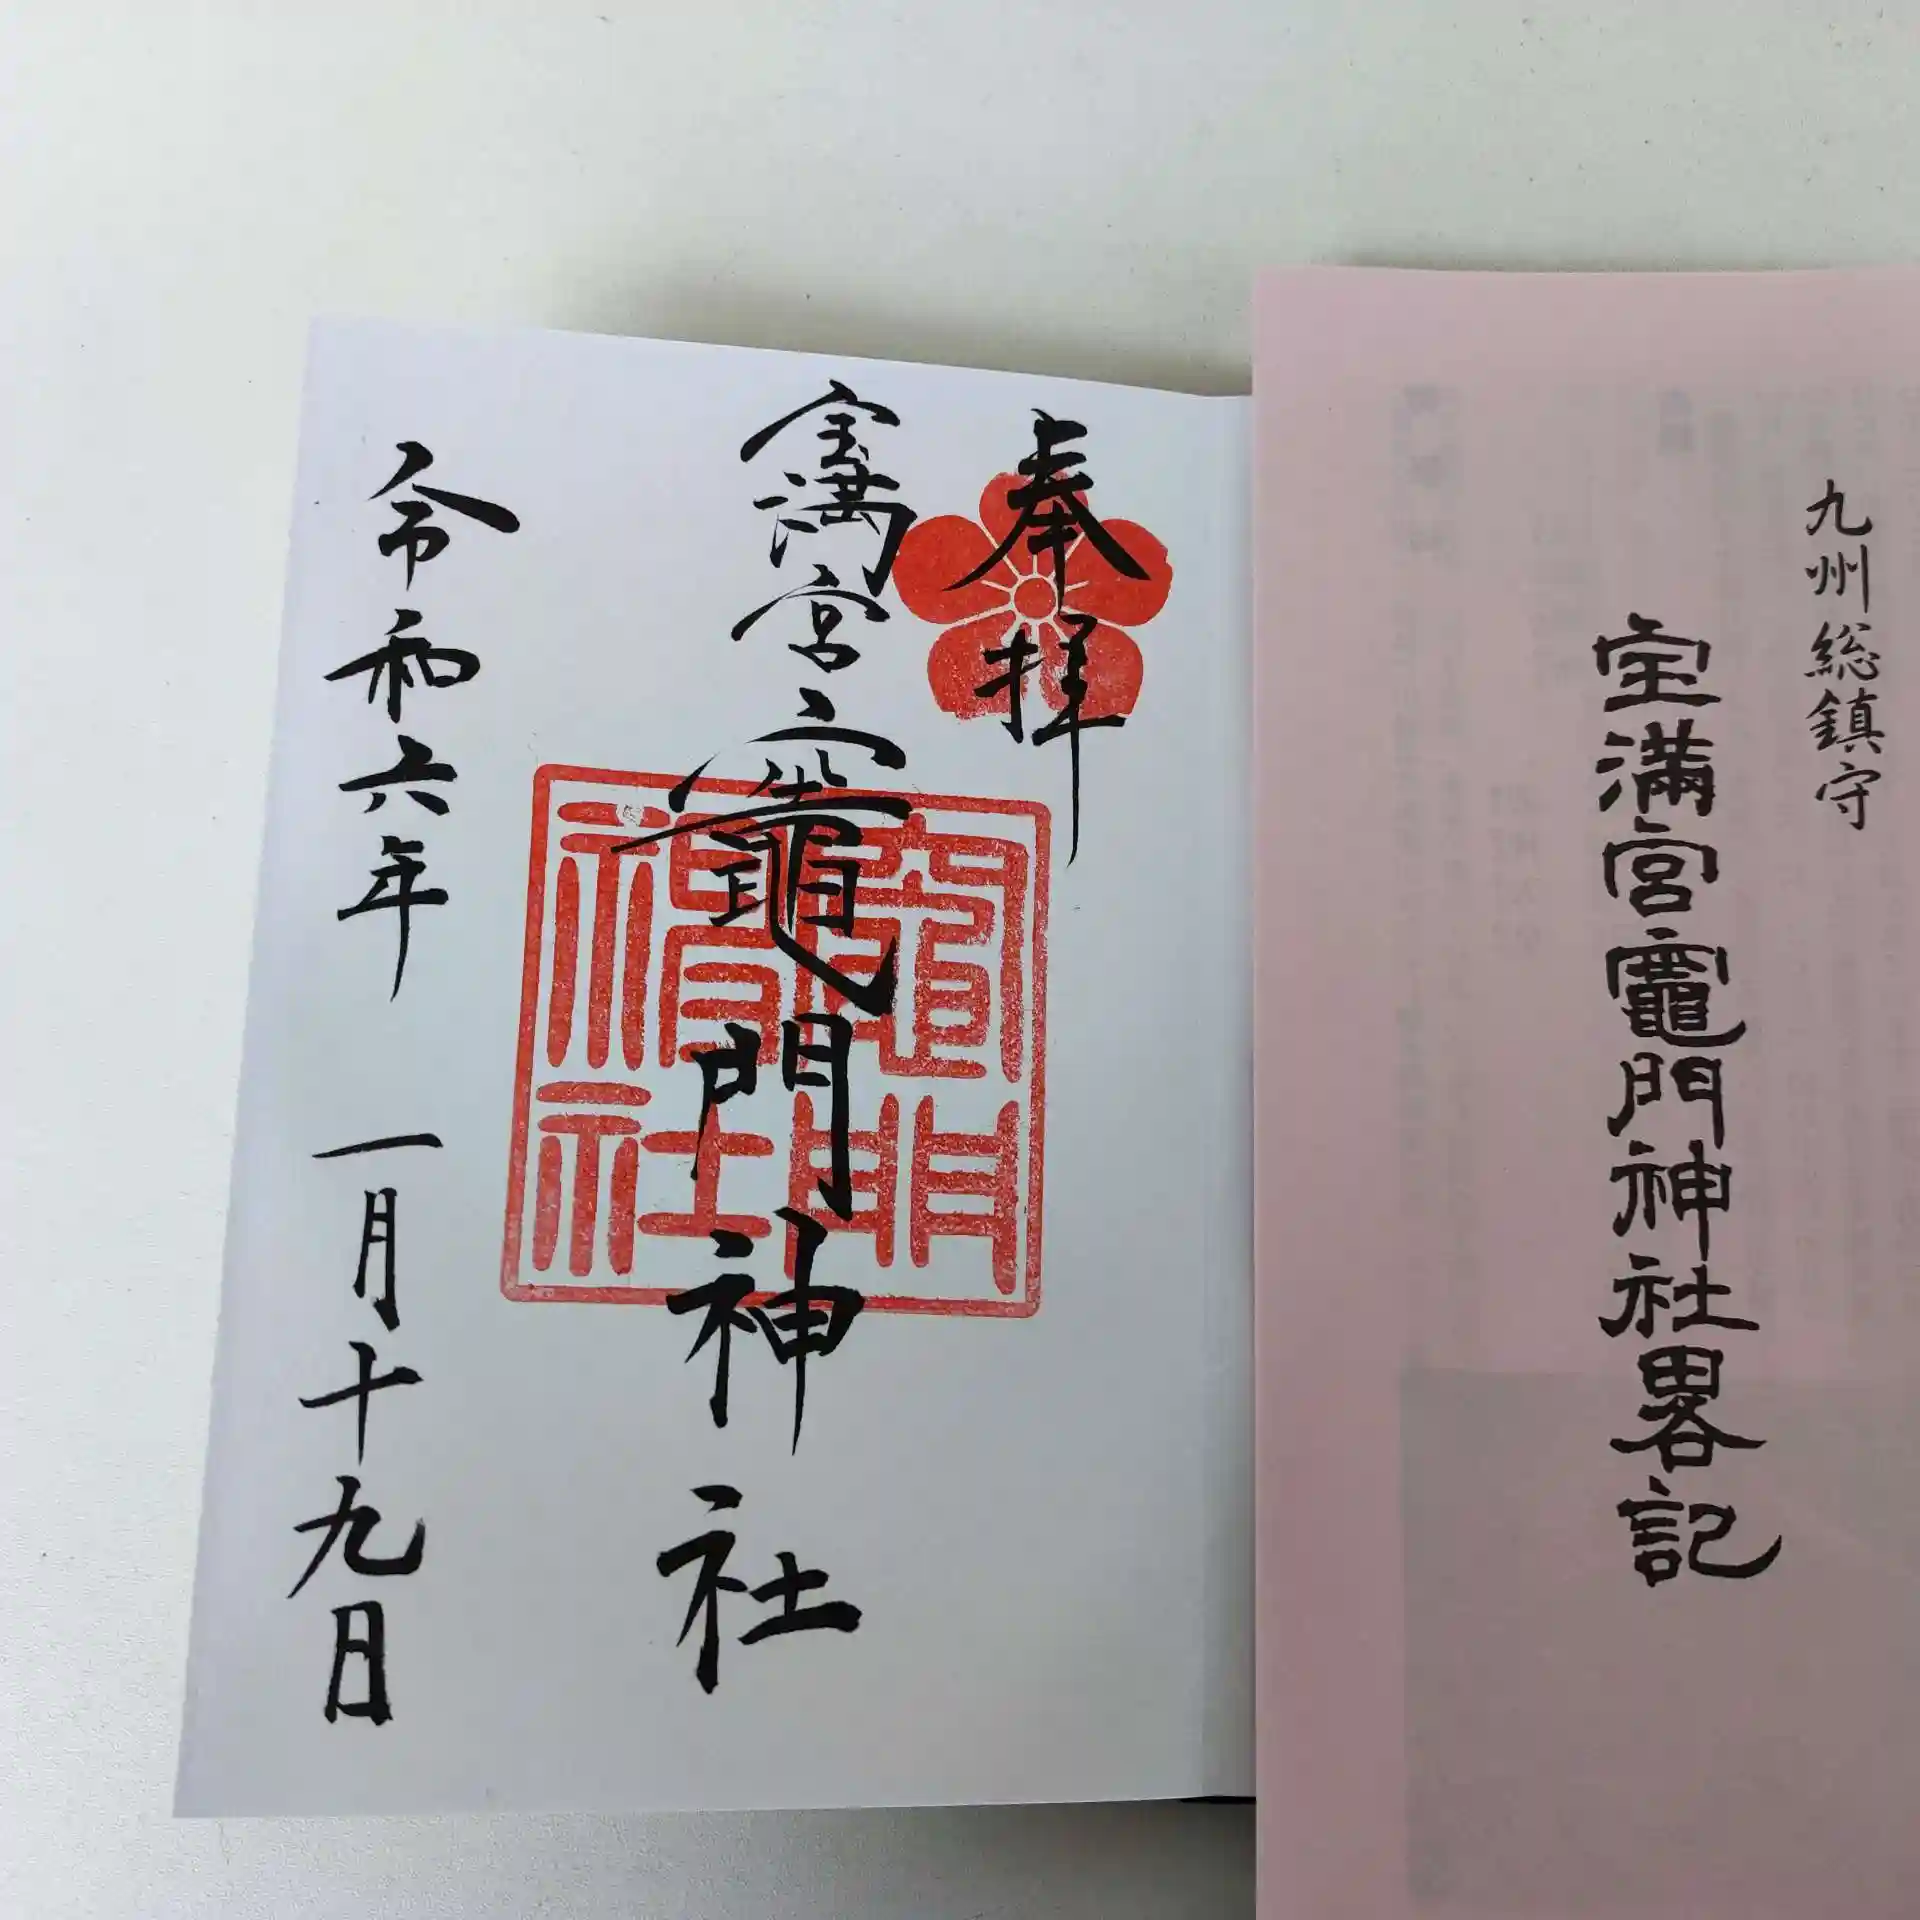 九州総鎮守
宝満宮竈門神社畧記
奉拝
宝満宮竈門神社
令和六年 一月十九日
竈門
神社